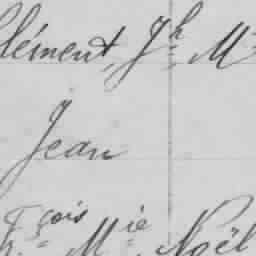 lément, Jh M
Jean
Fçois Mie Noël